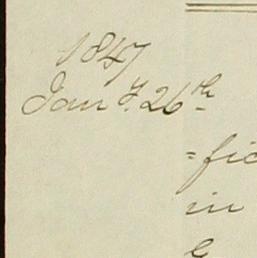 1847
Jany. 26th
=fic
in
e